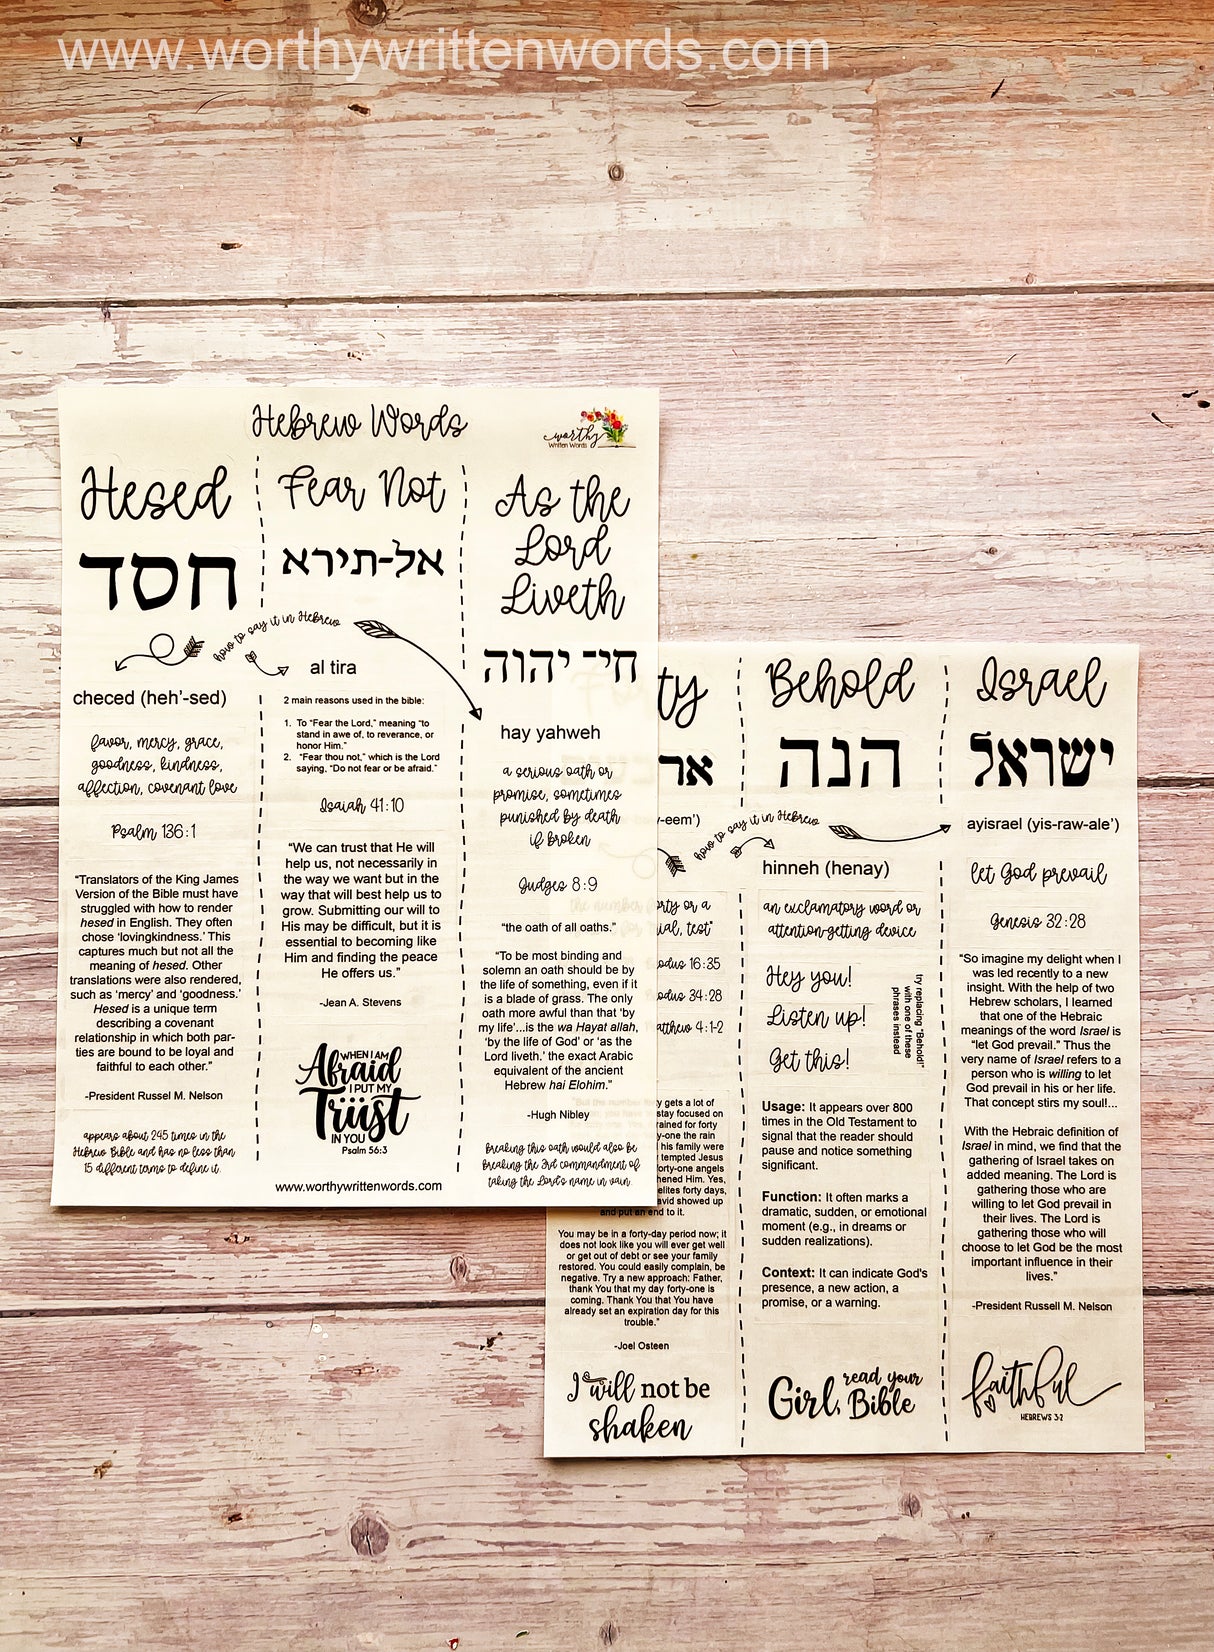 www.worthywrittenwords.com
Hebrew Words
worthy
Written Words
Hesed
חסד
how to say it in Hebrew
checed (heh’-sed)
favor, mercy, grace,
goodness, kindness,
affection, covenant love
Psalm 136:1
“Translators of the King James
Version of the Bible must have
struggled with how to render
hesed in English. They often
chose ‘lovingkindness.’ This
captures much but not all the
meaning of hesed. Other
translations were also rendered,
such as ‘mercy’ and ‘goodness.’
Hesed is a unique term
describing a covenant
relationship in which both par-
ties are bound to be loyal and
faithful to each other.”
-President Russel M. Nelson
appears about 245 times in the
Hebrew Bible and has no less than
15 different terms to define it.
Fear Not
אל-תירא
al tira
2 main reasons used in the bible:
1. To “Fear the Lord,” meaning “to
stand in awe of, to reverance, or
honor Him.”
2. “Fear thou not,” which is the Lord
saying, “Do not fear or be afraid.”
Isaiah 41:10
“We can trust that He will
help us, not necessarily in
the way we want but in the
way that will best help us to
grow. Submitting our will to
His may be difficult, but it is
essential to becoming like
Him and finding the peace
He offers us.”
-Jean A. Stevens
WHEN I AM
Afraid
I PUT MY
Trust
IN YOU
Psalm 56:3
www.worthywrittenwords.com
As the
Lord
Liveth
חי־ יהוה
hay yahweh
a serious oath or
promise, sometimes
punished by death
if broken
Judges 8:9
“the oath of all oaths.”
“To be most binding and
solemn an oath should be by
the life of something, even if it
is a blade of grass. The only
oath more awful than that ‘by
my life’...is the wa Hayat allah,
‘by the life of God’ or ‘as the
Lord liveth.’ the exact Arabic
equivalent of the ancient
Hebrew hai Elohim.”
-Hugh Nibley
breaking this oath would also be
breaking the 3rd commandment of
taking the Lord's name in vain.
ty
אר
-eem’)
orty or a
ial, test"
odus 16:35
odus 34:28
atthew 4:1-2
y gets a lot of
stay focused on
rained for forty
y-one the rain
his family were
tempted Jesus
orty-one angels
hened Him. Yes,
elites forty days,
avid showed up
and put an end to it.
You may be in a forty-day period now; it
does not look like you will ever get well
or get out of debt or see your family
restored. You could easily complain, be
negative. Try a new approach: Father,
thank You that my day forty-one is
coming. Thank You that You have
already set an expiration day for this
trouble.”
-Joel Osteen
I will not be
shaken
Behold
הנה
how to say it in Hebrew
hinneh (henay)
an exclamatory word or
attention-getting device
Hey you!
Listen up!
Get this!
try replacing "Behold!"
with one of these
phrases instead
Usage: It appears over 800
times in the Old Testament to
signal that the reader should
pause and notice something
significant.
Function: It often marks a
dramatic, sudden, or emotional
moment (e.g., in dreams or
sudden realizations).
Context: It can indicate God's
presence, a new action, a
promise, or a warning.
Girl, read your
Bible
Israel
ישראל
ayisrael (yis-raw-ale’)
let God prevail
Genesis 32:28
“So imagine my delight when I
was led recently to a new
insight. With the help of two
Hebrew scholars, I learned
that one of the Hebraic
meanings of the word Israel is
“let God prevail.” Thus the
very name of Israel refers to a
person who is willing to let
God prevail in his or her life.
That concept stirs my soul!...
With the Hebraic definition of
Israel in mind, we find that the
gathering of Israel takes on
added meaning. The Lord is
gathering those who are
willing to let God prevail in
their lives. The Lord is
gathering those who will
choose to let God be the most
important influence in their
lives.”
-President Russell M. Nelson
faithful
HEBREWS 3:2